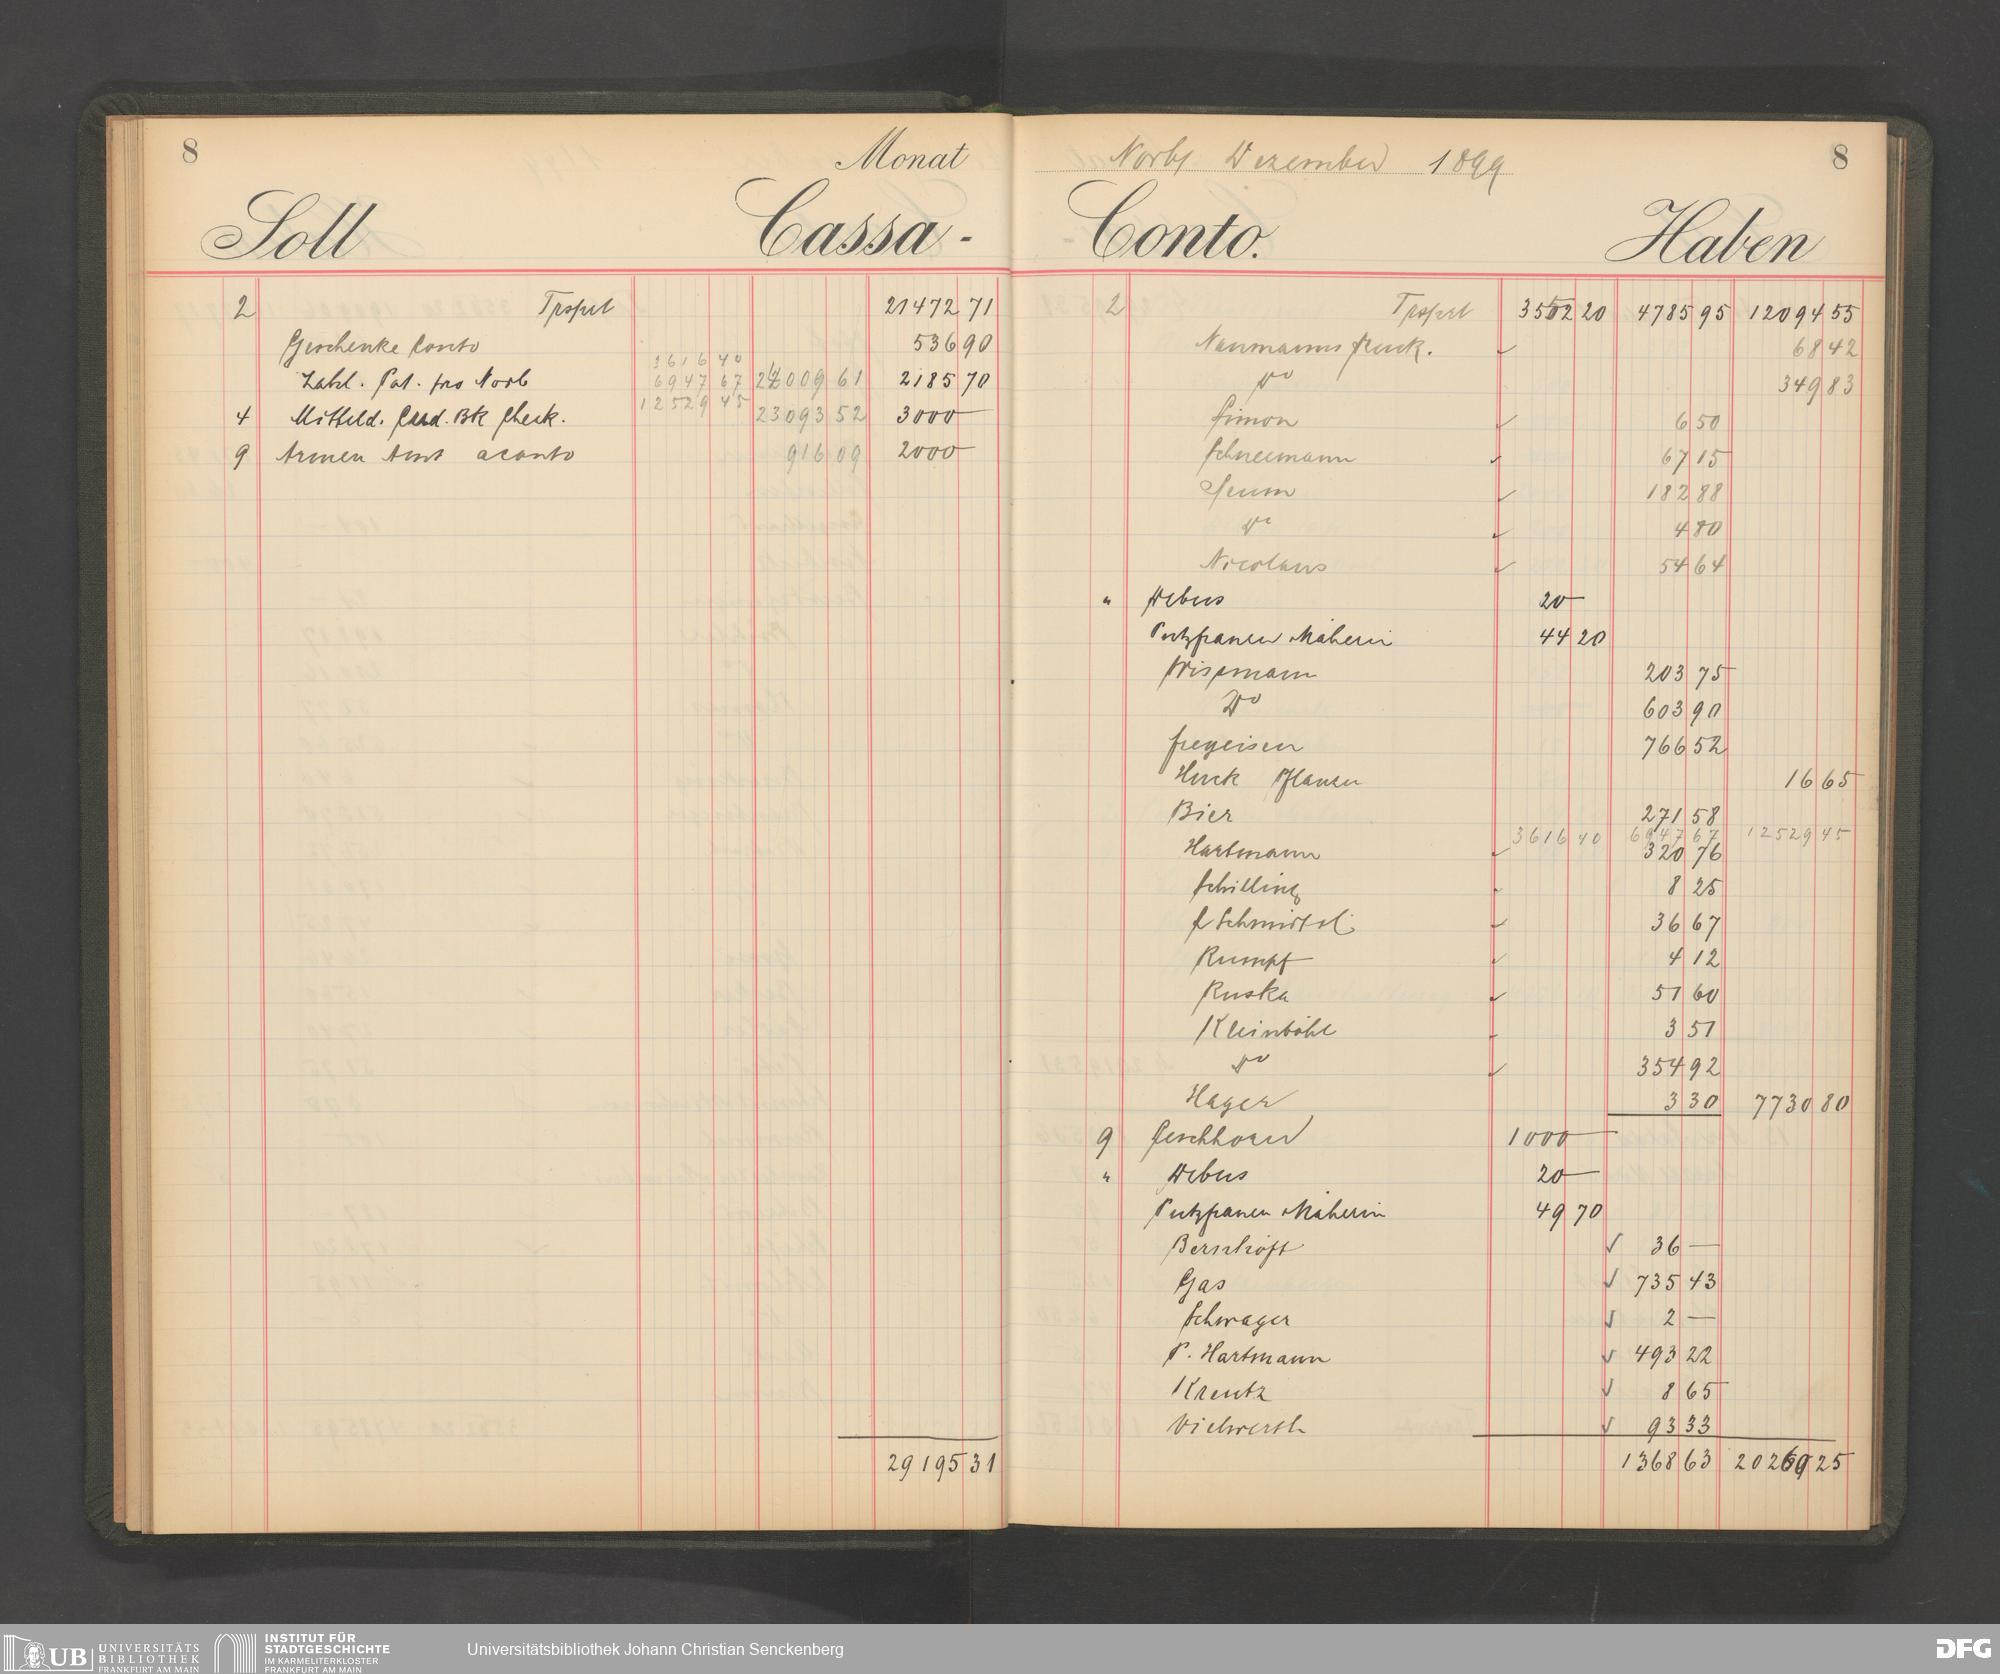 8 Monat
Soll Cassa-
2 Trsprt 21472 71
Geschenke Conto 536 90
3616 40
Zahl. Pat. pro Novb 6947 67 24009 61 2185 70
12529 45
4 Mitteld. Cred. Bk Check. 23093 52 3000 —
9 Armen Amt aconto 916 09 2000 —
29195 31
Novbr Dezember 1899 8
Conto. Haben
2 Trsprt 3502 20 4785 95 12094 55
Naumanns Druck. 68 42
do 349 83
Simon 6 50
Schneemann 67 15
Seum 182 88
do 4 80
Nicolaus 54 64
" Webus 20 —
Putzfrauen Näherin 44 20
Wissmann 203 75
Do 603 90
Fregeisen 766 52
Huck Pflanzen 16 65
Bier 271 58
3616 40 6947 67 12529 45
Hartmann 320 76
Schilling 8 25
C Schmidt sel. 36 67
Rumpf 4 12
Ruska 51 60
Kleinböhl 3 51
do 354 92
Hager 3 30 7730 80
9 Geschhorn 1000 —
" Webus 20 —
Putzfrauen Näherin 49 70
Berschöft 36 —
Gas 735 43
Schwager 2 —
P. Hartmann 493 22
Kreutz 8 65
Vielwerth 93 33
1368 63 20260 25
UB UNIVERSITÄTS
BIBLIOTHEK
FRANKFURT AM MAIN
INSTITUT FÜR
STADTGESCHICHTE
IM KARMELITERKLOSTER
FRANKFURT AM MAIN
Universitätsbibliothek Johann Christian Senckenberg
DFG